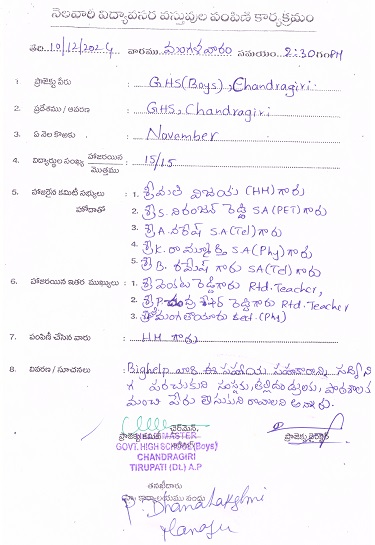 నెలవారి విద్యావసర వస్తువుల పంపిణి కార్యక్రమం
తేది. 10/12/2024 వారము మంగళవారం సమయం 2:30గంPM
1. ప్రాజెక్టు పేరు : GHS(Boys), Chandragiri.
2. ప్రదేశము / ఆవరణ : GHS, Chandragiri
3. ఏ నెల కొఱకు : November
4. విద్యార్థుల సంఖ్య హాజరయిన / మొత్తము : 15/15
5. హాజరైన కమిటి సభ్యులు : 1. శ్రీమతి విజయ (HH) గారు
హోదాతో 2. శ్రీ S. నిరంజన్ రెడ్డి SA(PET) గారు
3. శ్రీ A. నరేష్ SA(Tel) గారు
4. శ్రీ K. రామ్మూర్తి SA(Phy) గారు
5. శ్రీ B. రమేష్ గారు SA(Tel)
6. హాజరయిన ఇతర ముఖ్యులు : 1. శ్రీ రెడ్డిగారు Rtd. Teacher,
2. శ్రీ P. రెడ్డిగారు Rtd. Teacher
3.
7. పంపిణి చేసిన వారు : HH గారు
8. వివరణ / సూచనలు : Bighelp వారి ఈ సహాయ సహకారాన్ని
పరచుకుని సంస్థకు, తల్లిదండ్రులకు, పాఠశాలకు
మంచి పేరు తీసుకుని రావాలని అన్నారు.
ఛైర్మెన్,
ప్రాజెక్టు కమిటి
ప్రాజెక్టు డైరెక్టర్
HEADMASTER
GOVT. HIGH SCHOOL (Boys)
CHANDRAGIRI
TIRUPATI (Dt.) A.P
తనఖీదారు
P. Dhanalakshmi